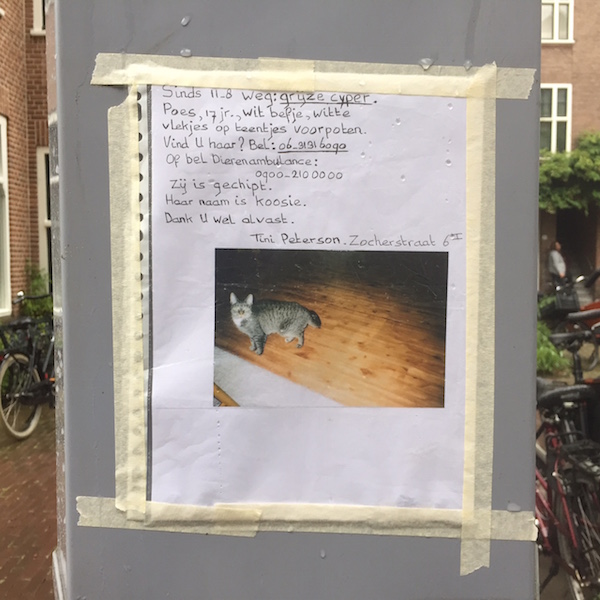 Sinds 11-8 weg: grijze cyper.
Poes, 17 jr., wit befje, witte
vlekjes op teentjes voorpoten.
Vind U haar? Bel: 06-31316090
Of bel Dierenambulance:
0900-2100000
Zij is gechipt.
Haar naam is Koosie.
Dank U wel alvast.
Tini Peterson. Zocherstraat 6 I